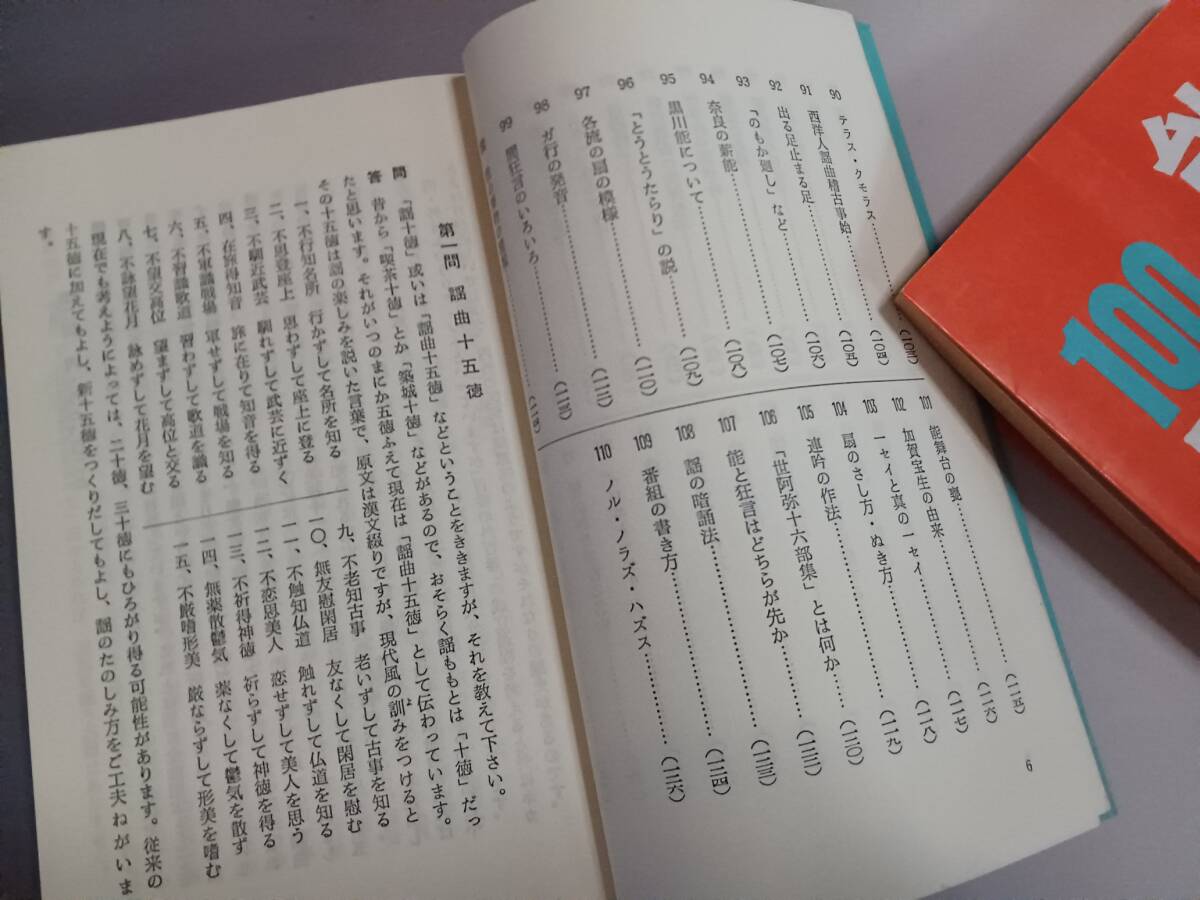 90 テラス・クモラス……(一〇三)
91 西洋人謡曲稽古事始……(一〇四)
92 出る足止まる足……(一〇五)
93 「のもか廻し」など……(一〇六)
94 奈良の薪能……(一〇七)
95 黒川能について……(一〇八)
96 「とうとうたらり」の説……(一〇九)
97 各流の扇の模様……(一一〇)
98 ガ行の発音……
99 間狂言のいろいろ……
101 能舞台の甕……(一一五)
102 加賀宝生の由来……(一一六)
103 一セイと真の一セイ……(一一七)
104 扇のさし方・ぬき方……(一一八)
105 連吟の作法……(一一九)
106 「世阿弥十六部集」とは何か……(一二〇)
107 能と狂言はどちらが先か……
108 謡の暗誦法……
109 番組の書き方……(一二四)
110 ノル・ノラズ・ハズス……(一二六)
6
第一問 謡曲十五徳
問 「謡十徳」或いは「謡曲十五徳」などということをききますが、それを教えて下さい。
答 昔から「喫茶十徳」とか「築城十徳」などがあるので、おそらく謡ももとは「十徳」だっ
たと思います。それがいつのまにか五徳ふえて現在は「謡曲十五徳」として伝わっています。
その十五徳は謡の楽しみを説いた言葉で、原文は漢文綴りですが、現代風の訓みをつけると
一、不行知名所 行かずして名所を知る
二、不思登座上 思わずして座上に登る
三、不馴近武芸 馴れずして武芸に近ずく
四、在旅得知音 旅に在りて知音を得る
五、不軍識戦場 軍せずして戦場を知る
六、不習識歌道 習わずして歌道を識る
七、不望交高位 望まずして高位と交る
八、不詠望花月 詠めずして花月を望む
九、不老知古事 老いずして古事を知る
一〇、無友慰閑居 友なくして閑居を慰む
一一、不触知仏道 触れずして仏道を知る
一二、不恋思美人 恋せずして美人を思う
一三、不祈得神徳 祈らずして神徳を得る
一四、無薬散鬱気 薬なくして鬱気を散ず
一五、不厳嗜形美 厳ならずして形美を嗜む
現在でも考えようによっては、二十徳、三十徳にもひろがり得る可能性があります。従来の
十五徳に加えてもよし、新十五徳をつくりだしてもよし、謡のたのしみ方をご工夫ねがいま
す。
100